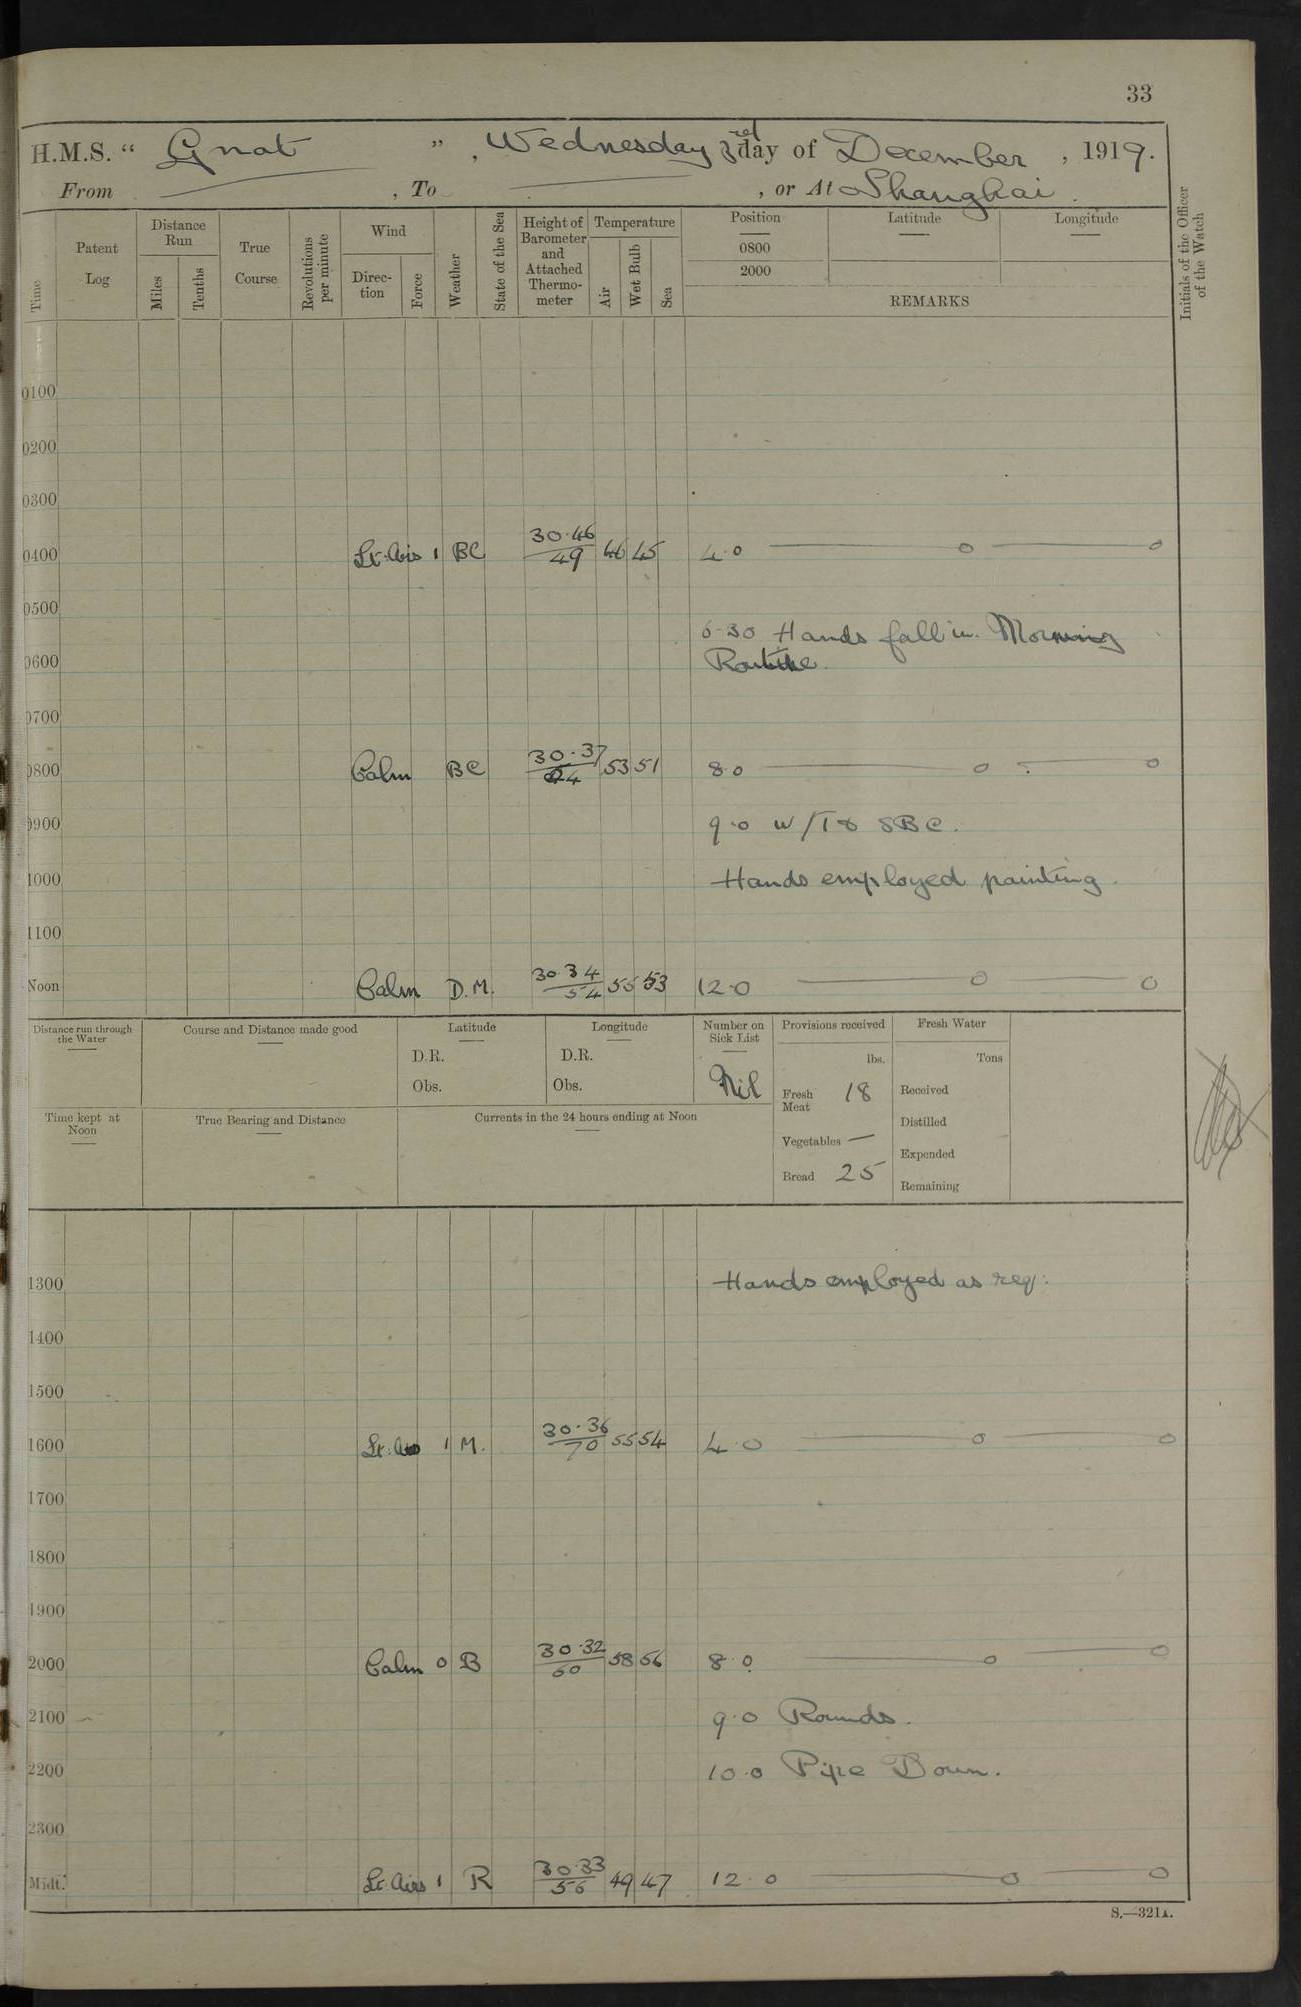 33
H.M.S. “ Gnat ”, Wednesday 3rd day of December, 1919.
From , To , or At Shanghai.
Time
Patent Log
Distance Run
Miles
Tenths
True Course
Revolutions per minute
Wind
Direction
Force
Weather
State of the Sea
Height of Barometer and Attached Thermometer
Temperature
Air
Wet Bulb
Sea
Position
0800
2000
Latitude
Longitude
REMARKS
Initials of the Officer of the Watch
0100
0200
0300
0400 Lt. Airs 1 BC 30.46/49 46 45 4.0
0500
6-30 Hands fall in. Morning
0600 Routine.
0700
0800 Calm BC 30.37 53 51 8.0
0900 9.0
1000 Hands employed painting.
1100
Noon Calm D.M. 30.34/54 55 53 12.0
Distance run through the Water
Course and Distance made good
Latitude
D.R.
Obs.
Longitude
D.R.
Obs.
Number on Sick List
Nil
Provisions received
lbs.
Fresh Meat 18
Vegetables —
Bread 25
Fresh Water
Tons
Received
Distilled
Expended
Remaining
Time kept at Noon
True Bearing and Distance
Currents in the 24 hours ending at Noon
1300 Hands employed as req:
1400
1500
1600 Lt. Airs 1 M. 30.36/70 55 54 4.0
1700
1800
1900
2000 Calm 0 B 30.32/60 58 56 8.0
2100 9.0 Rounds.
2200 10.0 Pipe Down.
2300
Midt. Lt. Airs 1 R 30.33/56 49 47 12.0
S.—321A.